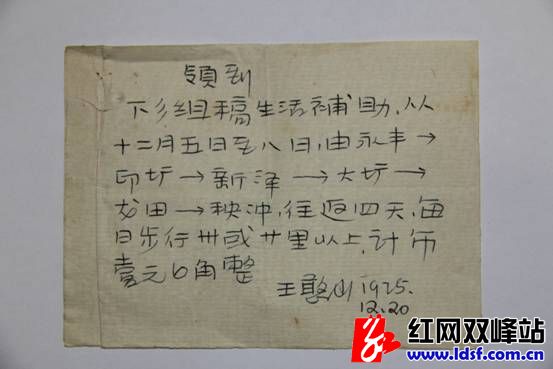 领到
下乡组稿生活補助,从
十二月五日至八日,由永丰→
印圹→新泽→大圹→
龙田→秧冲,往返四天,每
日步行卅或廿里以上,计币
壹元6角整
王憨山1975.
12.20
红网双峰站
www.ldsf.com.cn